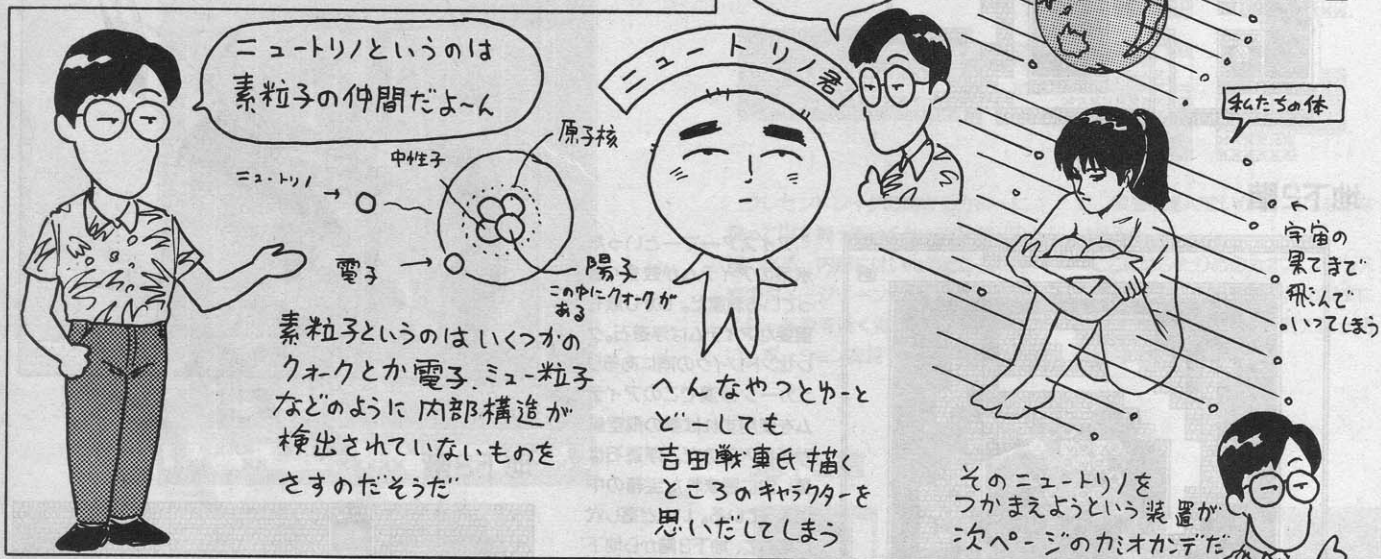 ニュートリノというのは
素粒子の仲間だよ〜ん
ニュートリノ
電子
中性子
原子核
陽子
この中にクォークが
ある
素粒子というのはいくつかの
クォークとか電子、ミュー粒子
などのように内部構造が
検出されていないものを
さすのだそうだ
ニュートリノ君
へんなやつとゆーと
どーしても
吉田戦車氏描く
ところのキャラクターを
思いだしてしまう
私たちの体
宇宙の
果てまで
飛んで
いってしまう
そのニュートリノを
つかまえようという装置が
次ページのカミオカンデだ